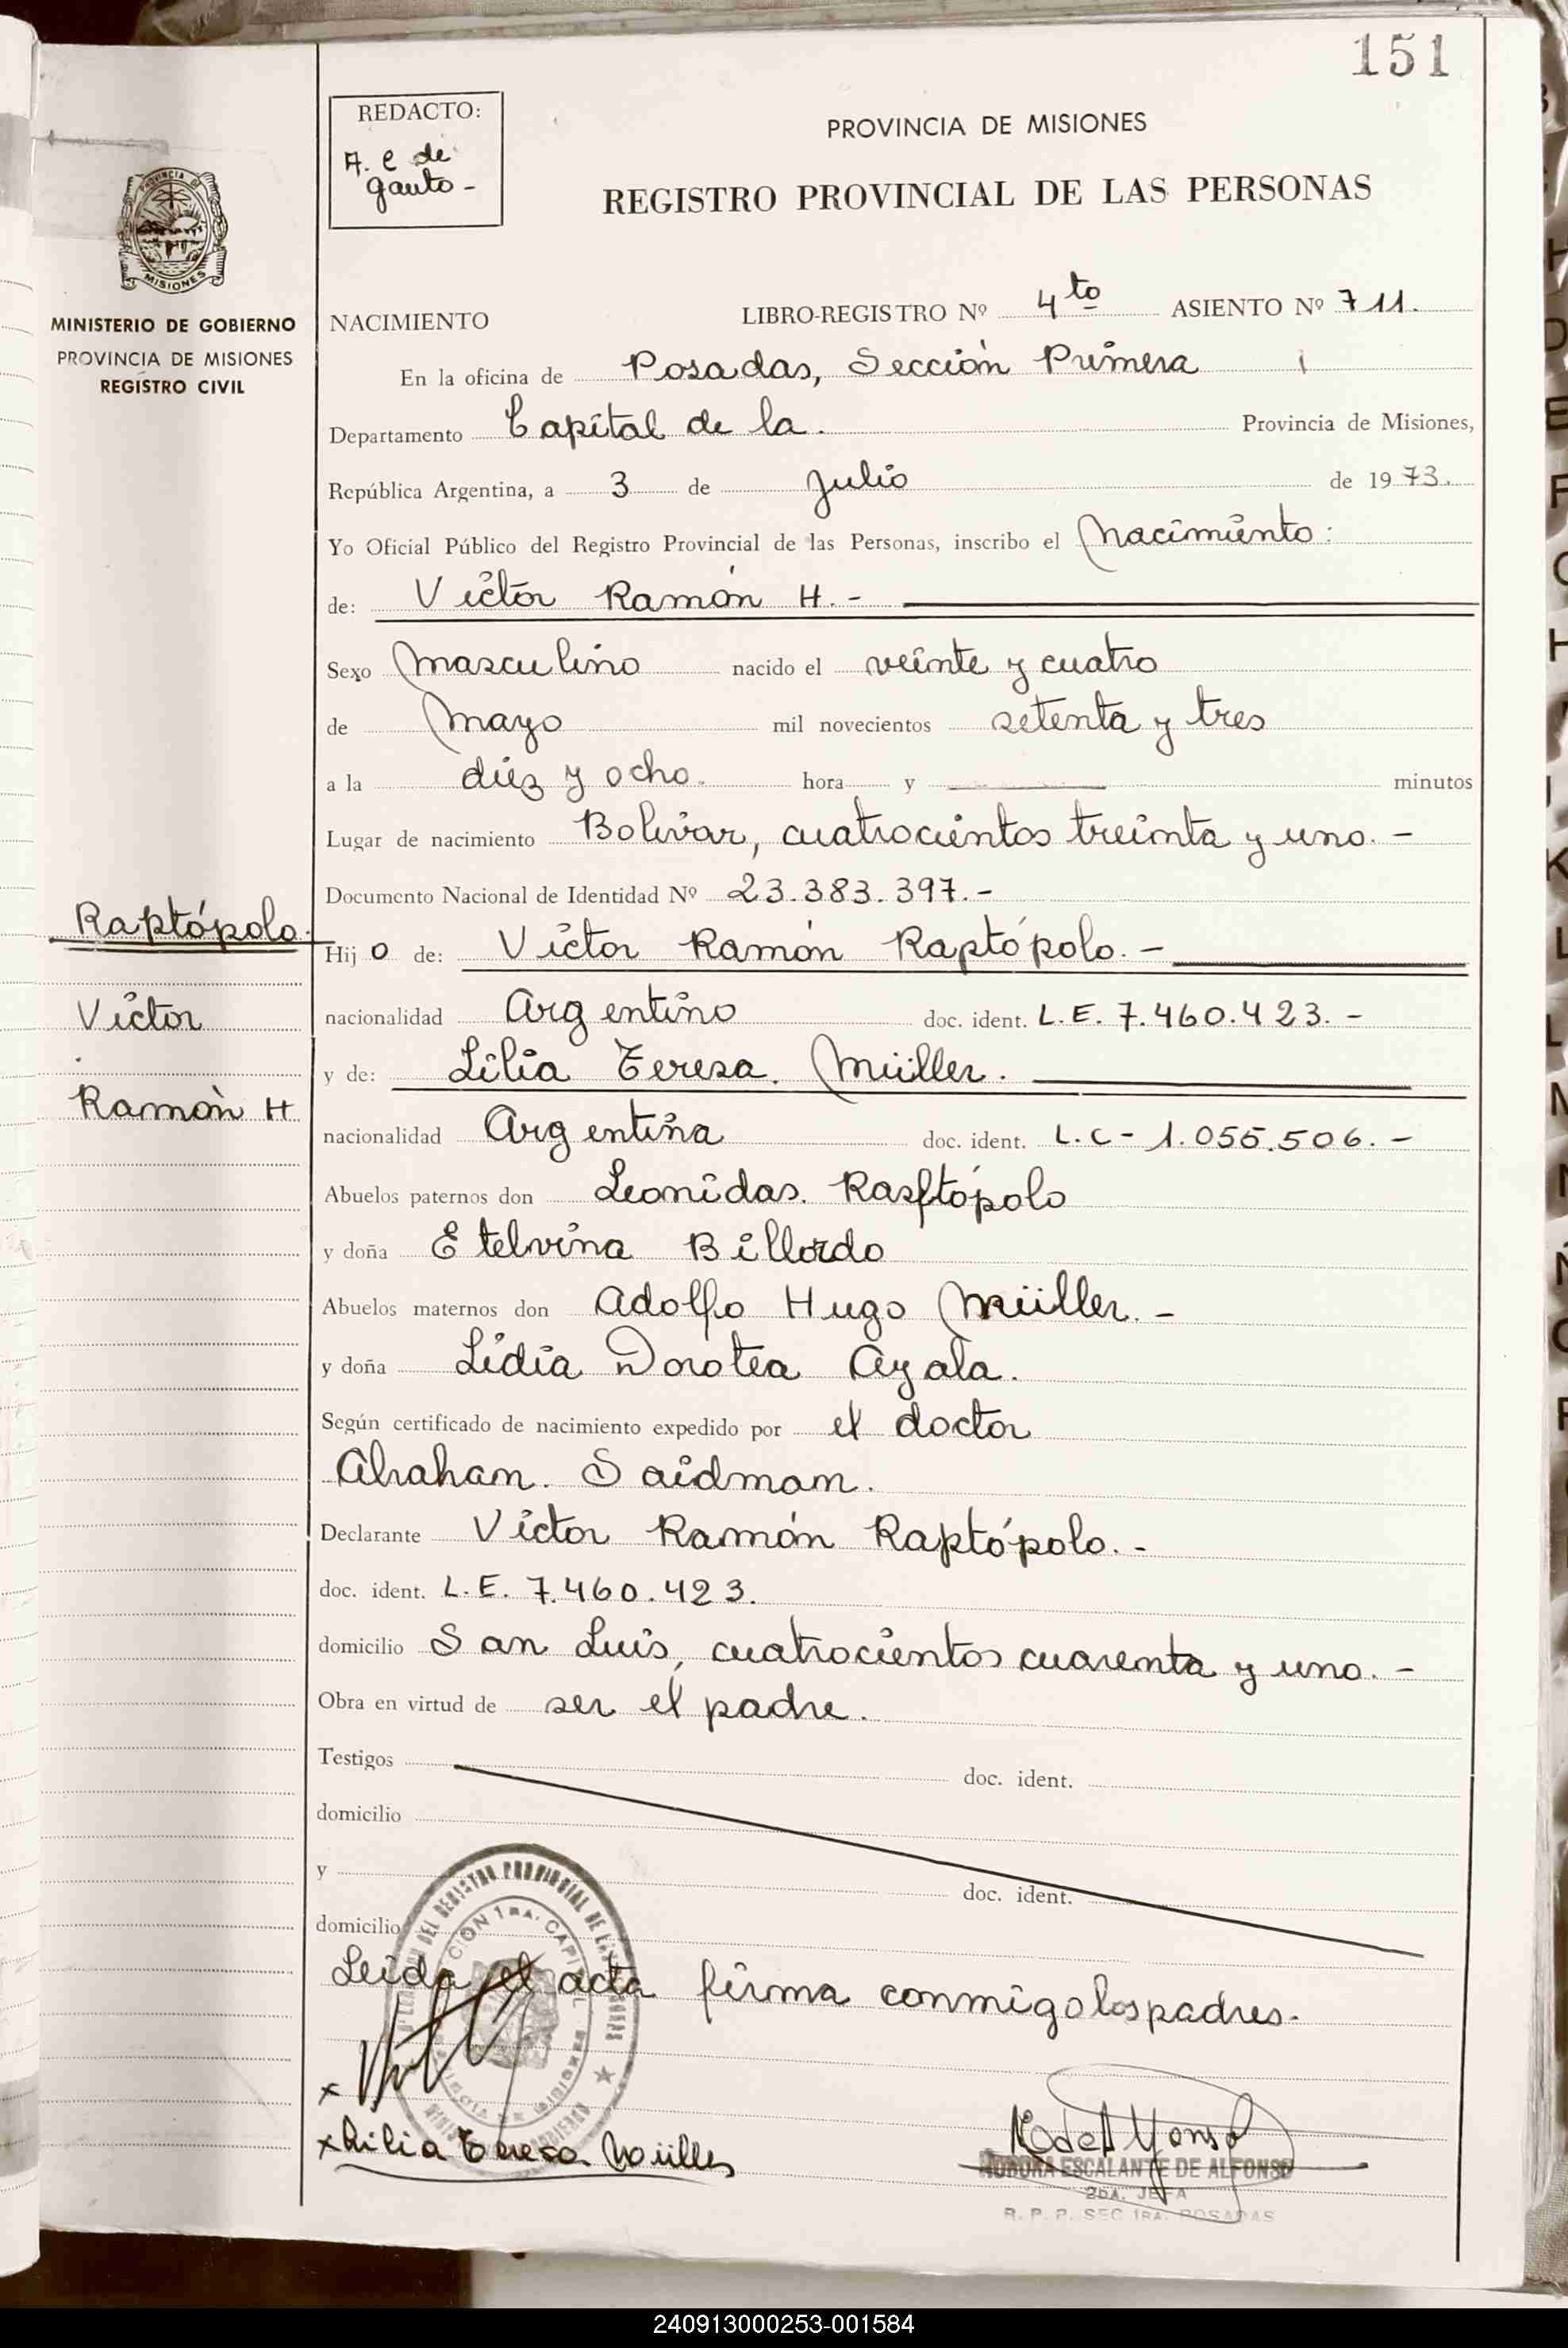 151
REDACTO:
A. e de
gauto -
PROVINCIA DE MISIONES
REGISTRO PROVINCIAL DE LAS PERSONAS
PROVINCIA
MISIONES
MINISTERIO DE GOBIERNO
PROVINCIA DE MISIONES
REGISTRO CIVIL
NACIMIENTO LIBRO-REGISTRO Nº 4to ASIENTO Nº 711.
En la oficina de Posadas, Sección Primera
Departamento Capital de la. Provincia de Misiones,
República Argentina, a 3 de Julio de 1973.
Yo Oficial Público del Registro Provincial de las Personas, inscribo el Nacimiento:
de: Víctor Ramón H. -
Sexo Masculino nacido el veinte y cuatro
de Mayo mil novecientos setenta y tres
a la diez y ocho. hora y minutos
Lugar de nacimiento Bolívar, cuatrocientos treinta y uno. -
Documento Nacional de Identidad Nº 23.383.397. -
Raptópolo.
Hijo de: Víctor Ramón Raptópolo. -
Víctor
nacionalidad Argentino doc. ident. L.E. 7.460.423. -
y de: Lilia Teresa. Müller.
Ramón H
nacionalidad Argentina doc. ident. L.C - 1.055.506. -
Abuelos paternos don Leonidas. Rasftópolo
y doña Etelvina Billordo
Abuelos maternos don Adolfo Hugo Müller. -
y doña Lidia Dorotea Ayala.
Según certificado de nacimiento expedido por el doctor
Abraham. Saidmam.
Declarante Víctor Ramón Raptópolo. -
doc. ident. L.E. 7.460.423.
domicilio San Luis, cuatrocientos cuarenta y uno. -
Obra en virtud de ser el padre.
Testigos doc. ident.
domicilio
y doc. ident.
domicilio
Leída el acta firma conmigo los padres.
x
x Lilia Teresa Müller
AURORA ESCALANTE DE ALFONSO
2DA. JEFA
R. P. P. SEC 1RA. POSADAS
240913000253-001584